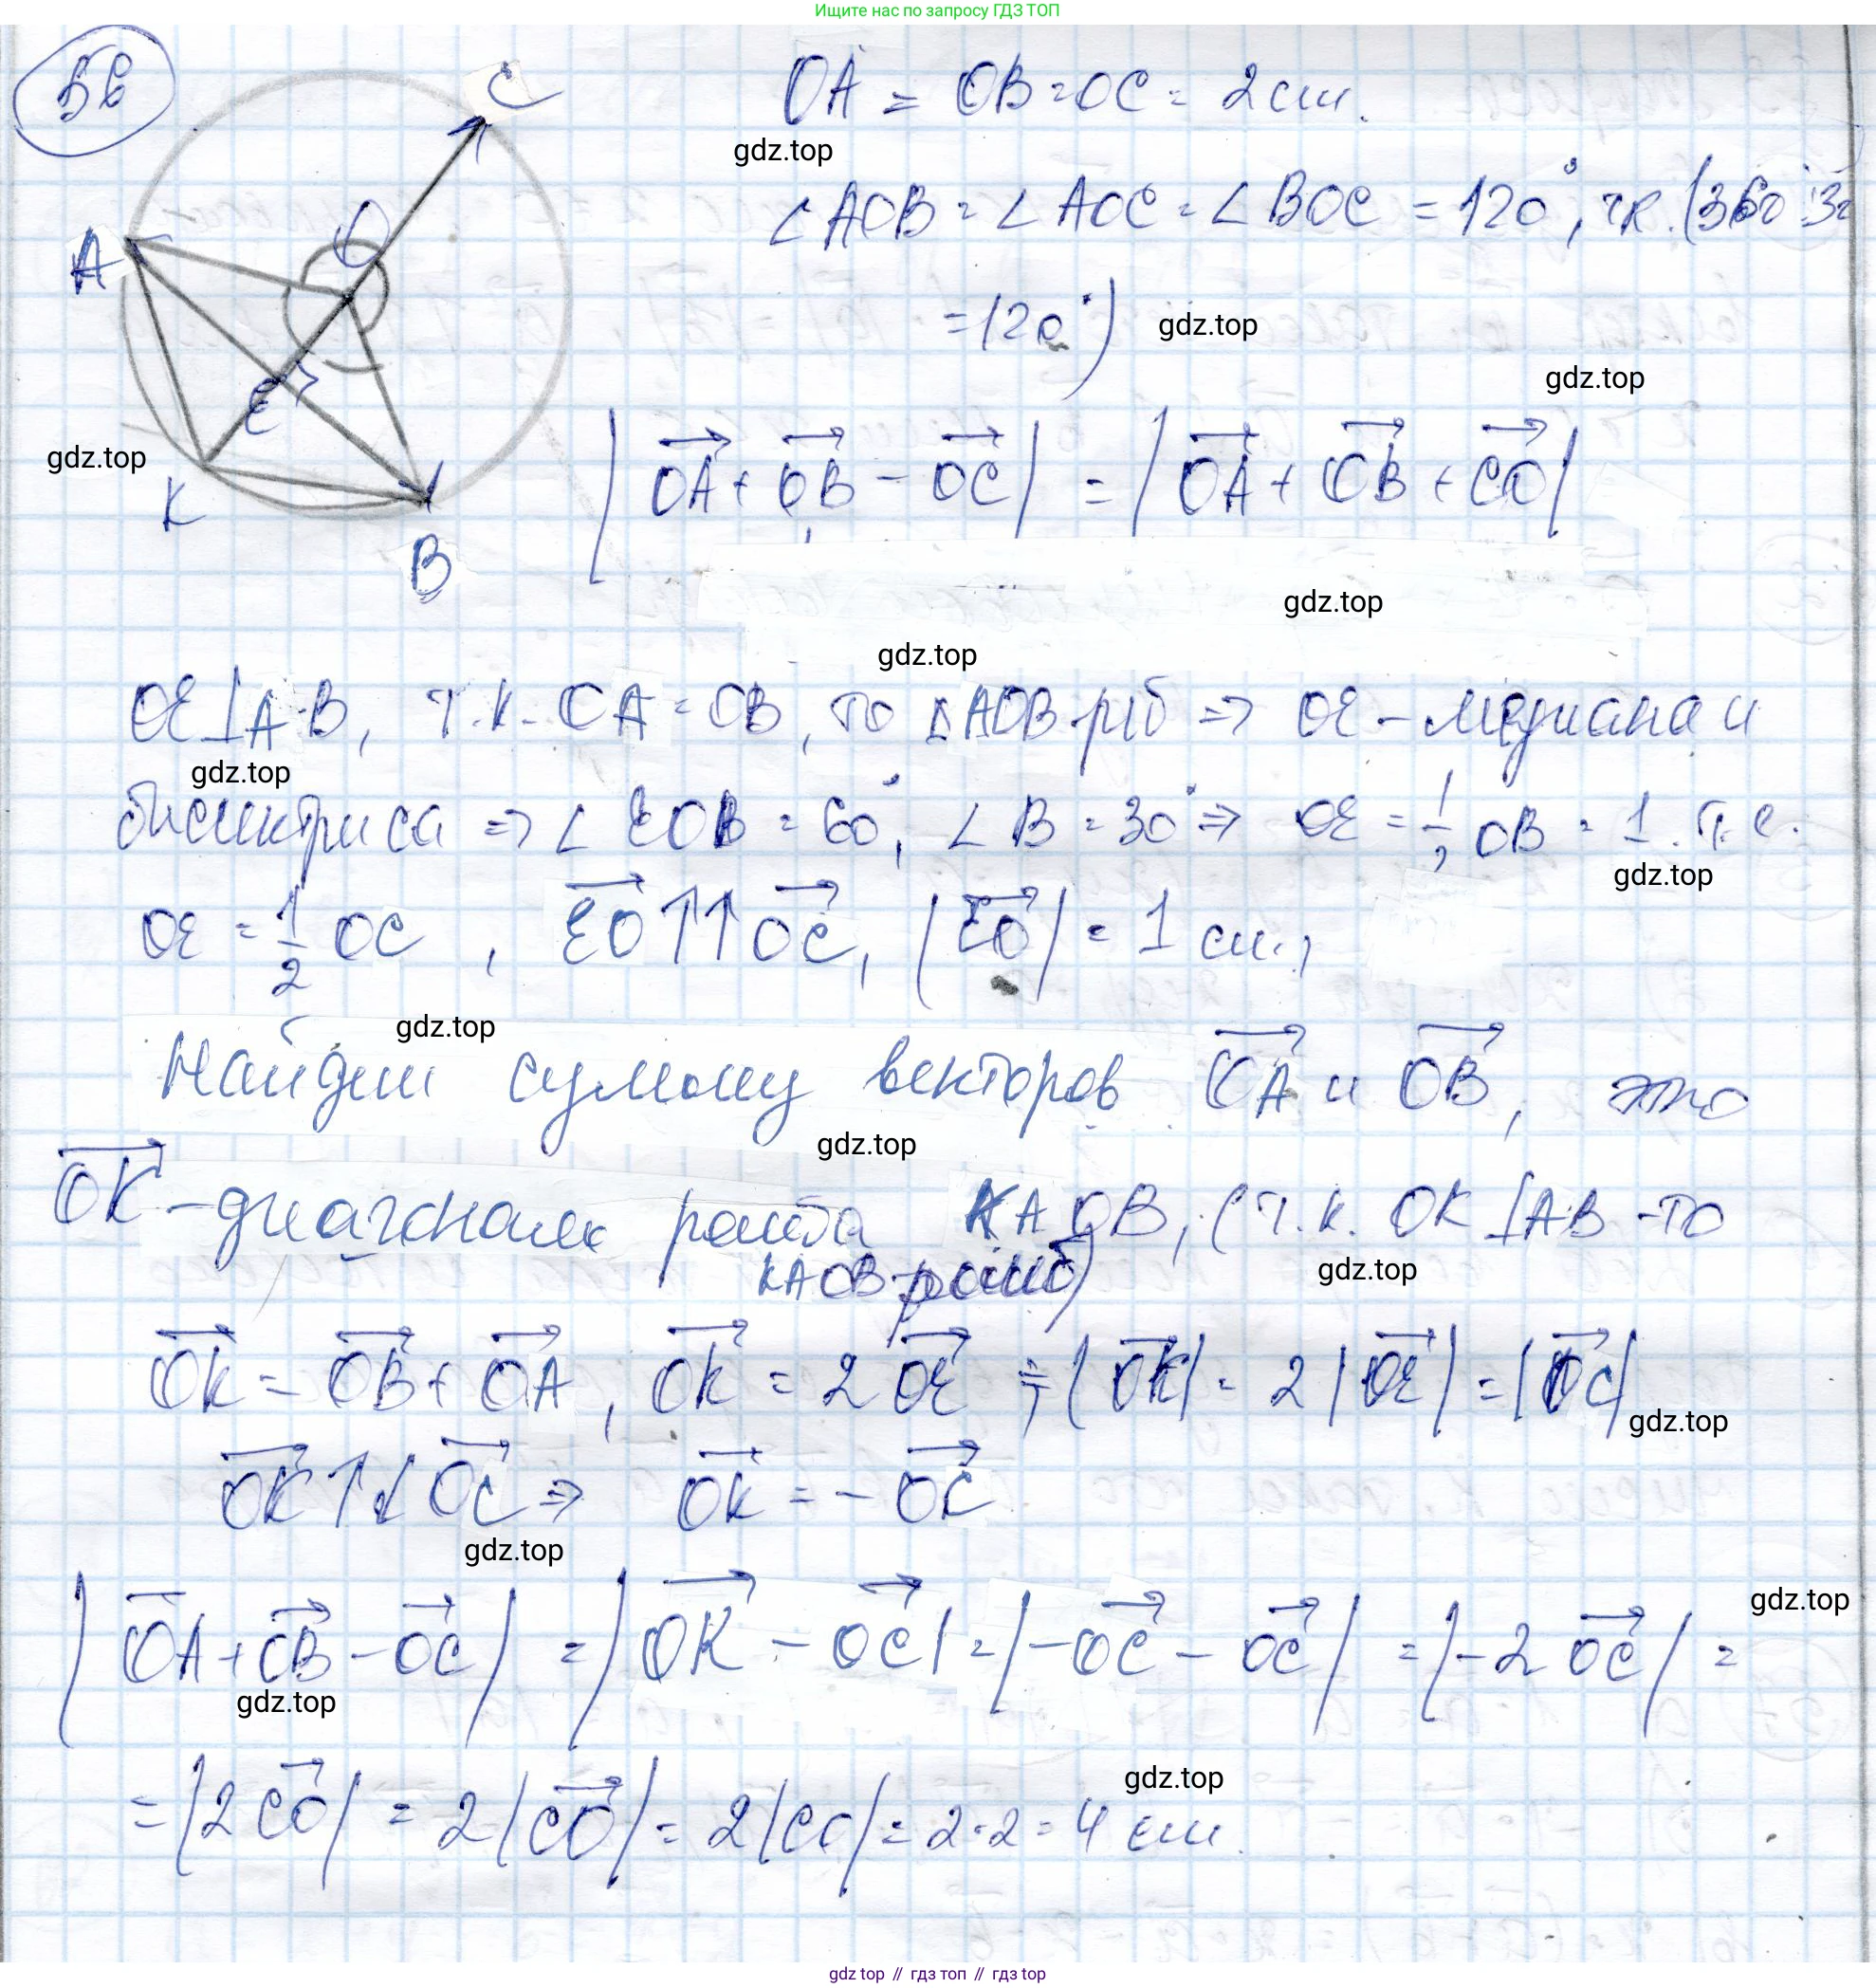 Ищите нас по запросу ГДЗ ТОП
5в
C
OA = OB = OC = 2 см.
gdz.top
∠AOB = ∠AOC = ∠BOC = 120°, т.к. (360°:3=
= 120°)
gdz.top
A
O
E
K
B
gdz.top
gdz.top
|OA⃗ + OB⃗ - OC⃗| = |OA⃗ + OB⃗ + CO⃗|
gdz.top
gdz.top
OE ⊥ AB, т.к. OA = OB, то ΔAOB р/б ⇒ OE - медиана и
gdz.top
биссектриса ⇒ ∠EOB = 60°, ∠B = 30° ⇒ OE = 1/2 OB = 1. т.е.
gdz.top
OE = 1/2 OC, EO⃗ ↑↑ OC⃗, |EO⃗| = 1 см,
gdz.top
Найдем сумму векторов OA⃗ и OB⃗, это
gdz.top
OK⃗ - диагональ ромба KAOB, (т.к. OK ⊥ AB - то
KAOB - ромб)
gdz.top
OK⃗ = OB⃗ + OA⃗, OK⃗ = 2 OE⃗ ⇒ |OK⃗| = 2 |OE⃗| = |OC⃗|
gdz.top
OK⃗ ↑↓ OC⃗ ⇒ OK⃗ = - OC⃗
gdz.top
gdz.top
|OA⃗ + OB⃗ - OC⃗| = |OK⃗ - OC⃗| = |-OC⃗ - OC⃗| = |-2 OC⃗| =
gdz.top
gdz.top
= |2 CO⃗| = 2 |CO⃗| = 2 |CO| = 2·2 = 4 см.
gdz.top // гдз топ // гдз top